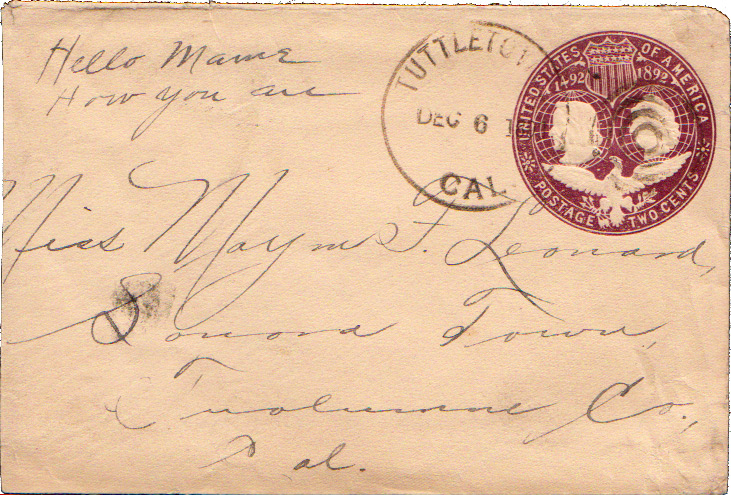 Hello Mame
How you are
TUTTLETOWN
DEC 6 1
CAL
UNITED STATES OF AMERICA
1492 1892
POSTAGE TWO CENTS
Miss Mayme F. Leonard,
Sonora Town,
Tuolumne Co.,
Cal.